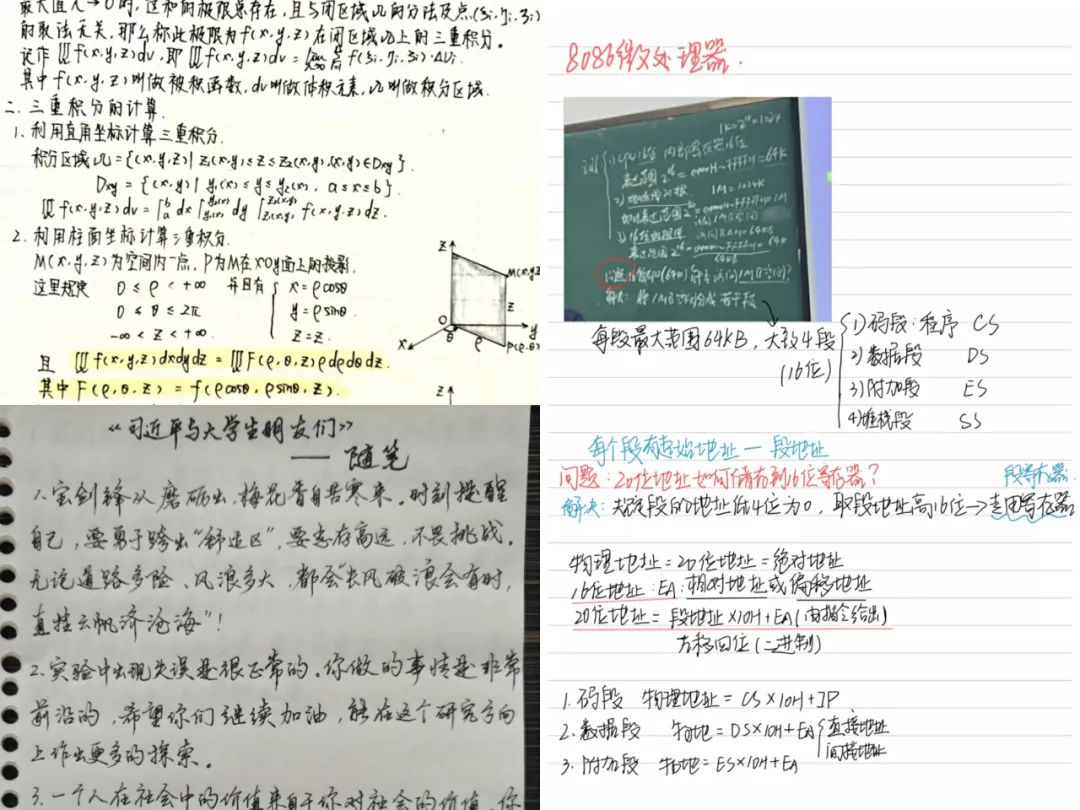 最大值λ→0时,这和的极限总存在,且与闭区域Ω的分法及点(ξi,ηi,ζi)
的取法无关,那么称此极限为f(x,y,z)在闭区域Ω上的三重积分。
记作∭f(x,y,z)dv,即∭f(x,y,z)dv=lim Σ f(ξi,ηi,ζi)·ΔVi.
其中f(x,y,z)叫做被积函数,dv叫做体积元素,Ω叫做积分区域.
二.三重积分的计算.
1.利用直角坐标计算三重积分.
积分区域Ω={(x,y,z)|z₁(x,y)≤z≤z₂(x,y),(x,y)∈Dxy}.
Dxy={(x,y)|y₁(x)≤y≤y₂(x),a≤x≤b}.
∭f(x,y,z)dv=∫ₐᵇdx∫dy∫f(x,y,z)dz.
2.利用柱面坐标计算三重积分.
M(x,y,z)为空间内一点,P为M在xoy面上的投影.
这里规定 0≤ρ<+∞ 并且有 { x=ρcosθ
0≤θ≤2π y=ρsinθ
-∞<z<+∞ z=z.
且 ∭f(x,y,z)dxdydz=∭F(ρ,θ,z)ρdρdθdz.
其中F(ρ,θ,z)=f(ρcosθ,ρsinθ,z).
z
M(x,y,z)
z
O
y
θ
ρ
P(ρ,θ)
x
z
《习近平与大学生朋友们》
——随笔
1.宝剑锋从磨砺出,梅花香自苦寒来。时刻提醒
自己,要勇于跨出"舒适区",要志存高远,不畏挑战。
无论道路多险、风浪多大,都会"长风破浪会有时,
直挂云帆济沧海"!
2.实验中出现失误是很正常的。你做的事情是非常
前沿的,希望你们继续加油,能在这个研究方向
上作出更多的探索。
3.一个人在社会中的价值来自于你对社会的价值,你
8086微处理器.
1K=2¹⁰=1024
1)CPU16位 内部寄存器16位
表达范围2¹⁶=0000H~FFFFH=64K
1M=1024K
每段最大范围64KB,大致4段
(16位)
1)码段:程序 CS
2)数据段 DS
3)附加段 ES
4)堆栈段 SS
每个段有起始地址—段地址
问题:20位地址如何储存到16位寄存器?
段寄存器
解决:规定段的地址低4位为0,取段地址高16位→专用寄存器
物理地址=20位地址=绝对地址
16位地址:EA:相对地址或偏移地址
20位地址=段地址×10H+EA(由指令给出)
左移四位(二进制)
1.码段 物理地址=CS×10H+IP
2.数据段 物地=DS×10H+EA{直接地址
间接地址
3.附加段 物地=ES×10H+EA